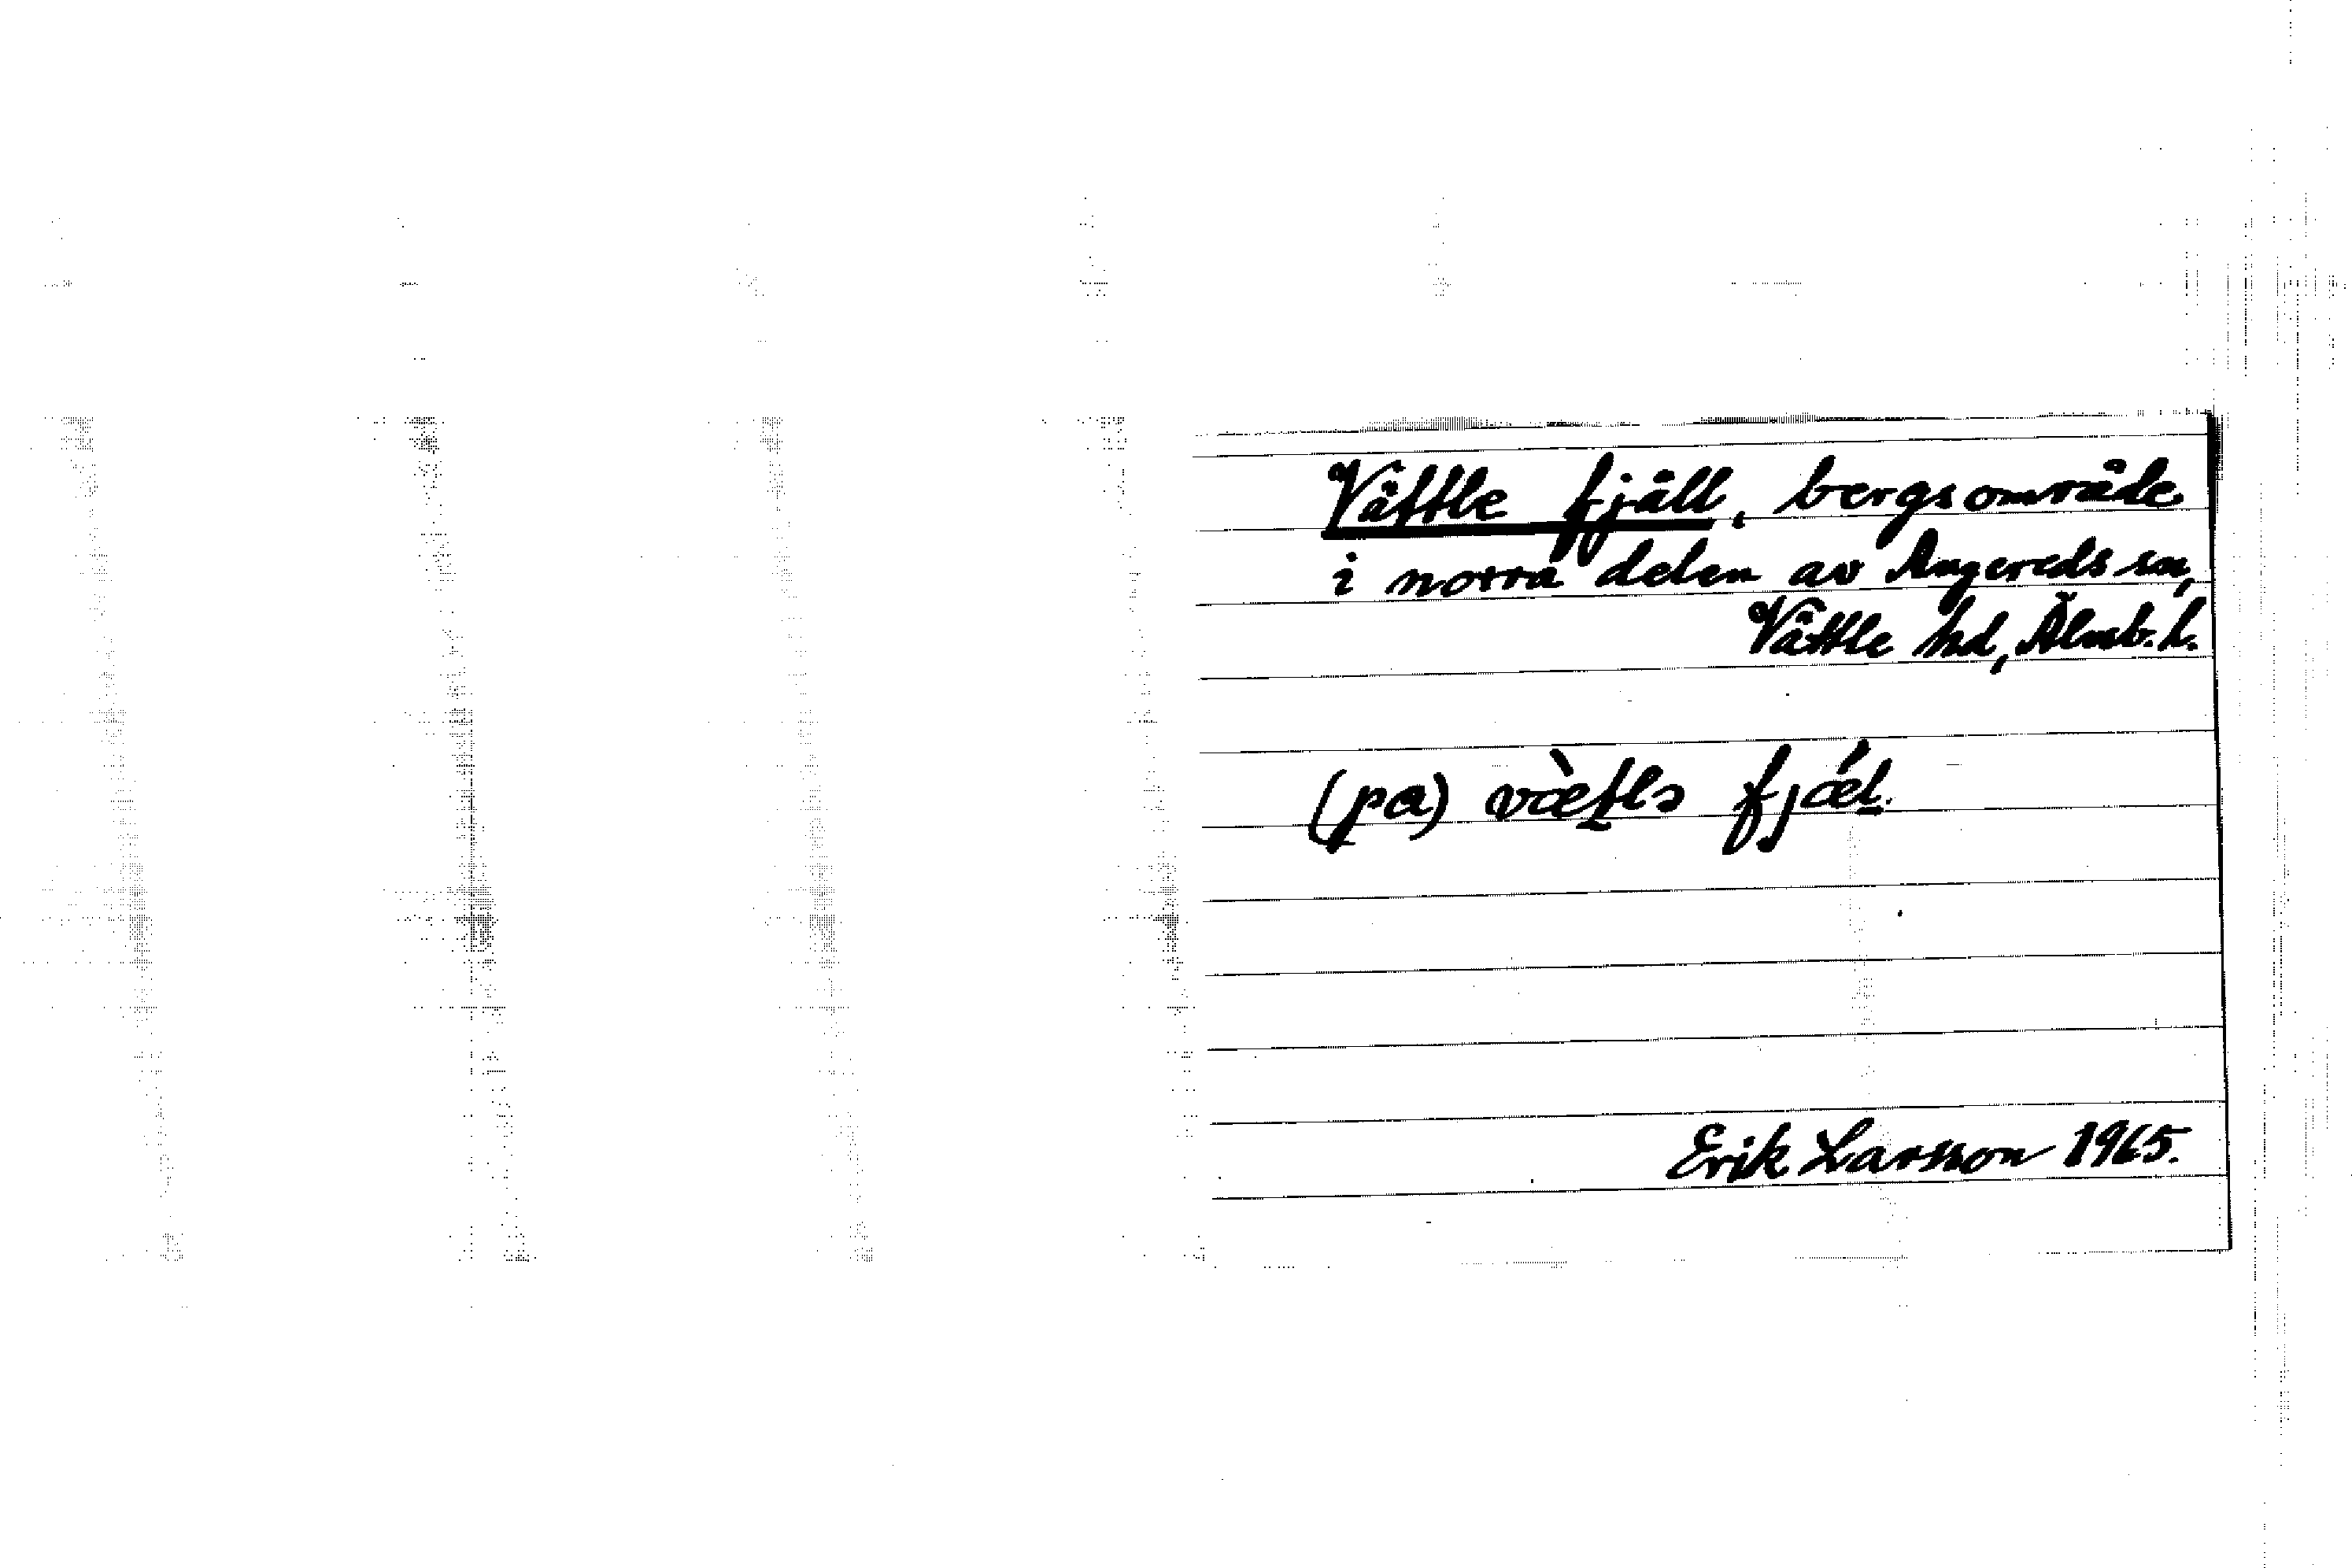 Vättle fjäll, bergsområde
i norra delen av Angereds sn,
Vättle hd, Älvsb. l.
(pa) vàetlə fjǽl.
Erik Larsson 1965.